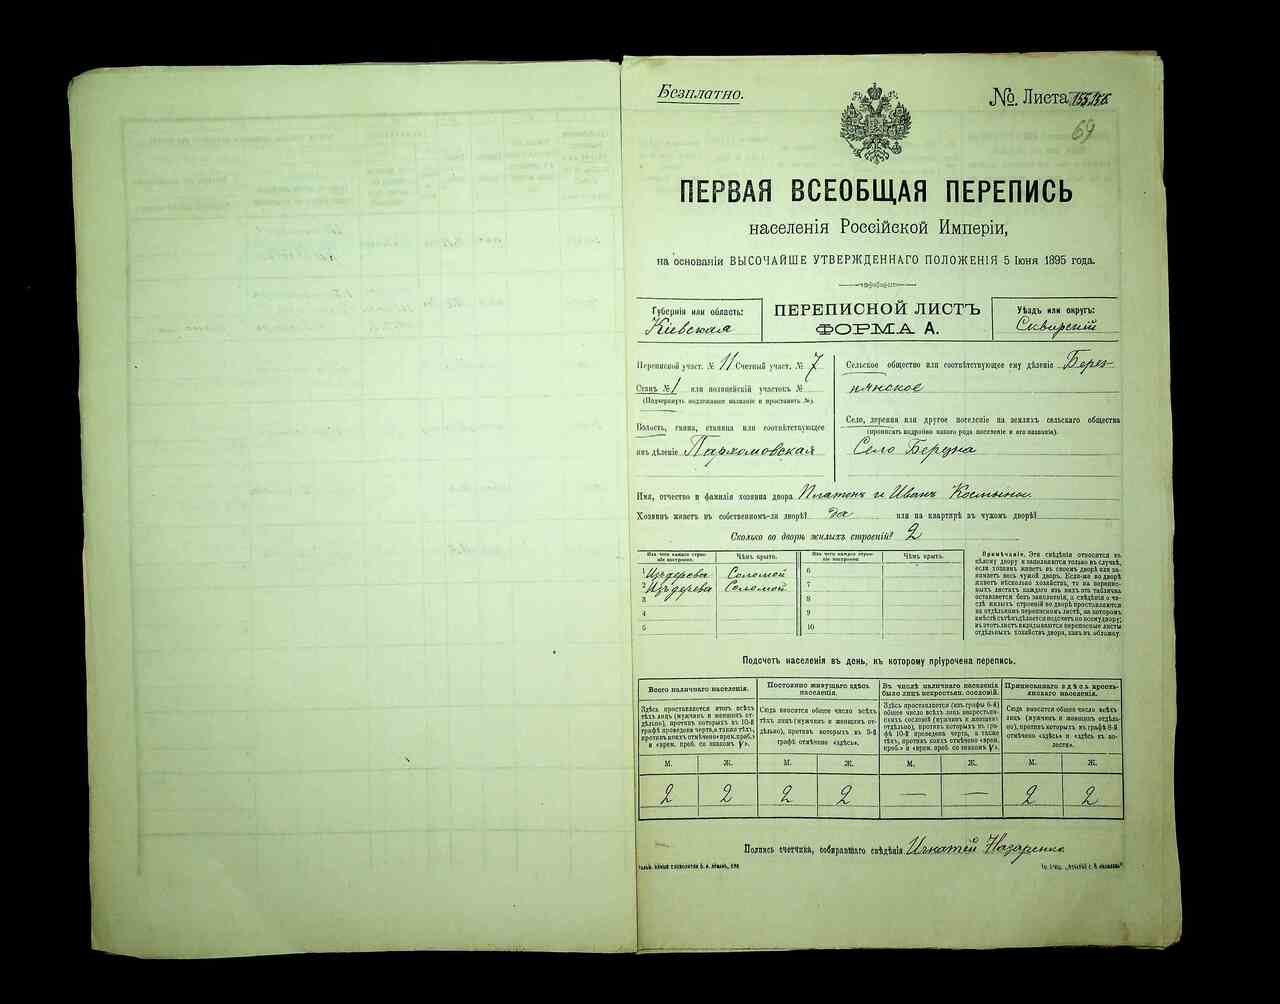 Безплатно.
№ Листа
69
ПЕРВАЯ ВСЕОБЩАЯ ПЕРЕПИСЬ
населенія Россійской Имперіи,
на основаніи ВЫСОЧАЙШЕ УТВЕРЖДЕННАГО ПОЛОЖЕНІЯ 5 Іюня 1895 года.
Губернія или область:
Кіевская
ПЕРЕПИСНОЙ ЛИСТЪ
ФОРМА А.
Уѣздъ или округъ:
Сквирскій
Переписной участ. № 11 Счетный участ. № 7
Станъ № 1 или полицейскій участокъ №
(Подчеркнуть надлежащее названіе и проставить №).
Волость, гмина, станица или соотвѣтствующее
имъ дѣленіе Пархомовская
Сельское общество или соотвѣтствующее ему дѣленіе Берез-
нянское
Село, деревня или другое поселеніе на земляхъ сельскаго общества
(прописать подробно какого рода поселеніе и его названіе).
Село
Имя, отчество и фамилія хозяина двора Платонъ и Иванъ
Хозяинъ живетъ въ собственномъ-ли дворѣ? да или на квартирѣ въ чужомъ дворѣ?
Сколько во дворѣ жилыхъ строеній? 2
Изъ чего каждое строеніе построено. Чѣмъ крыто.
1 Изъ дерева Соломой
2 Изъ дерева Соломой
3
4
5
Изъ чего каждое строеніе построено. Чѣмъ крыто.
6
7
8
9
10
Примѣчаніе. Эти свѣдѣнія относятся къ
цѣлому двору и заполняются только въ случаѣ,
если хозяинъ живетъ въ своемъ дворѣ или за-
нимаетъ весь чужой дворъ. Если-же во дворѣ
живетъ нѣсколько хозяйствъ, то на перепис-
ныхъ листахъ каждаго изъ нихъ эта табличка
оставляется безъ заполненія, а свѣдѣнія о чи-
слѣ жилыхъ строеній во дворѣ проставляются
на отдѣльномъ переписномъ листѣ, на которомъ
вмѣстѣ съ тѣмъ дѣлается подсчетъ по всему двору;
въ этотъ листъ вкладываются переписные листы
отдѣльныхъ хозяйствъ двора, какъ въ обложку.
Подсчетъ населенія въ день, къ которому пріурочена перепись.
Всего наличнаго населенія.
Здѣсь проставляется итогъ всѣхъ
тѣхъ лицъ (мужчинъ и женщинъ от-
дѣльно), противъ которыхъ въ 10-й
графѣ проведена черта, а также тѣхъ,
противъ коихъ отмѣчено «врем. проб.»
и «врем. проб. со знакомъ V».
Постоянно живущаго здѣсь
населенія.
Сюда вносится общее число всѣхъ
тѣхъ лицъ (мужчинъ и женщинъ от-
дѣльно), противъ которыхъ въ 9-й
графѣ отмѣчено «здѣсь».
Въ числѣ наличнаго населенія
было лицъ некрестьян. сословій.
Здѣсь проставляется (изъ графы 6-й)
общее число всѣхъ лицъ некрестьян-
скихъ сословій (мужчинъ и женщинъ
отдѣльно), противъ которыхъ въ гра-
фѣ 10-й проведена черта, а также
тѣхъ, противъ коихъ отмѣчено «врем.
проб.» и «врем. проб. со знакомъ V».
Приписаннаго здѣсь кресть-
янскаго населенія.
Сюда вносится общее число всѣхъ
лицъ (мужчинъ и женщинъ отдѣль-
но), противъ которыхъ въ графѣ 8-й
отмѣчено «здѣсь» и «здѣсь къ во-
лости».
М. Ж. М. Ж. М. Ж. М. Ж.
2 2 2 2 — — 2 2
Подпись счетчика, собиравшаго свѣдѣнія Игнатій Назаренко